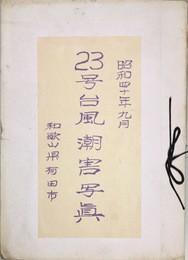 昭和四十年九月
23号台風潮害写真
和歌山県有田市